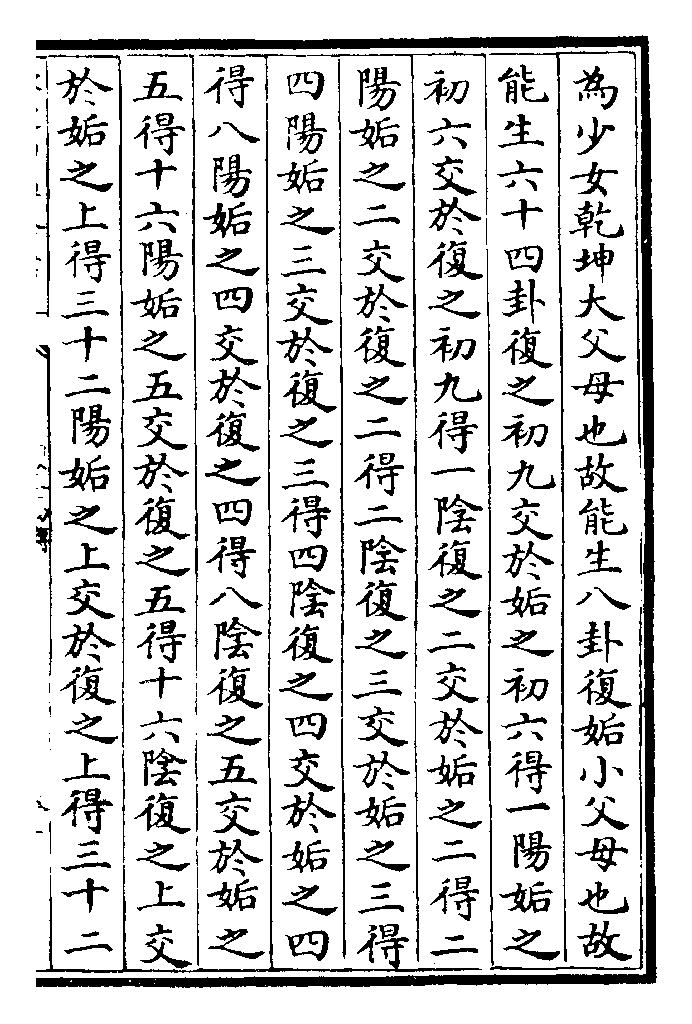 為少女乾坤大父母也故能生八卦復姤小父母也故
能生六十四卦復之初九交於姤之初六得一陽姤之
初六交於復之初九得一陰復之二交於姤之二得二
陽姤之二交於復之二得二陰復之三交於姤之三得
四陽姤之三交於復之三得四陰復之四交於姤之四
得八陽姤之四交於復之四得八陰復之五交於姤之
五得十六陽姤之五交於復之五得十六陰復之上交
於姤之上得三十二陽姤之上交於復之上得三十二